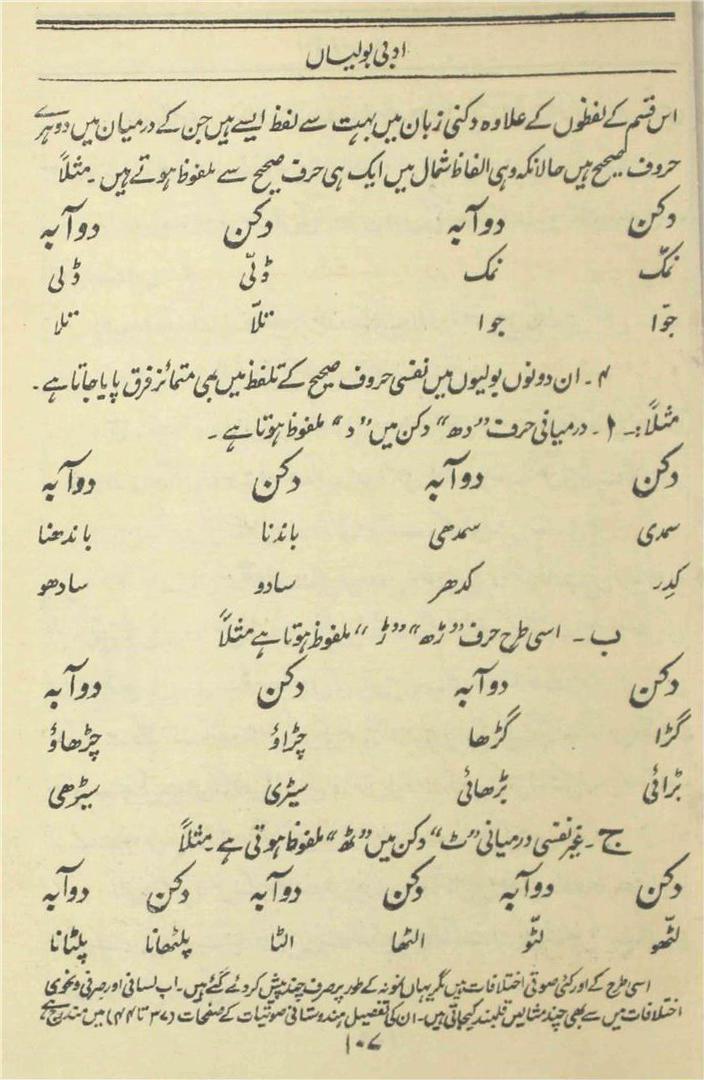 ادبی بولیاں
اس قسم کے لفظوں کے علاوہ دکنی زبان میں بہت سے لفظ ایسے ہیں جن کے درمیان میں دوہرے
حروف صحیح ہیں حالانکہ وہی الفاظ شمال میں ایک ہی حرف صحیح سے ملفوظ ہوتے ہیں۔ مثلاً
دکن دوآبہ دکن دوآبہ
نمّک نمک ڈلّی ڈلی
جوّا جوا تلّا تلا
۴۔ ان دونوں بولیوں میں نفسی حروف صحیح کے تلفظ میں بھی متمائز فرق پایا جاتا ہے۔
مثلاً:۔ ا۔ درمیانی حرف "دھ" دکن میں "د" ملفوظ ہوتا ہے۔
دکن دوآبہ دکن دوآبہ
سمدی سمدھی باندنا باندھنا
کدِر کدھر سادو سادھو
ب۔ اسی طرح حرف "ڑھ" "ڑ" ملفوظ ہوتا ہے مثلاً
دکن دوآبہ دکن دوآبہ
گڑا گڑھا چڑاؤ چڑھاؤ
بڑائی بڑھائی سیڑی سیڑھی
ج۔ غیر نفسی درمیانی "ٹ" دکن میں "ٹھ" ملفوظ ہوتی ہے۔ مثلاً
دکن دوآبہ دکن دوآبہ دکن دوآبہ
لٹّھو لٹّو الٹھا الٹا پلٹھانا پلٹانا
اسی طرح کے اور کئی صوتی اختلافات ہیں مگر یہاں نمونہ کے طور پر صرف چند پیش کر دئے گئے ہیں۔ اب لسانی اور صرفی و نحوی
اختلافات میں سے بھی چند مثالیں قلمبند کیجاتی ہیں۔ ان کی تفصیل ہندوستانی صوتیات کے صفحات (۳۷ تا ۴۴) میں مندرج ہے
۱۰۷